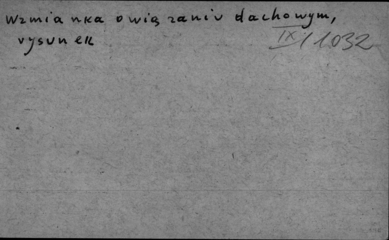 Wzmianka o wiązaniu dachowym,
rysunek
IX/1032